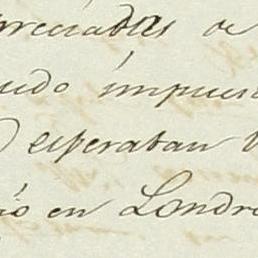 preciadas de
udo impues
esperaban
ió en Londr